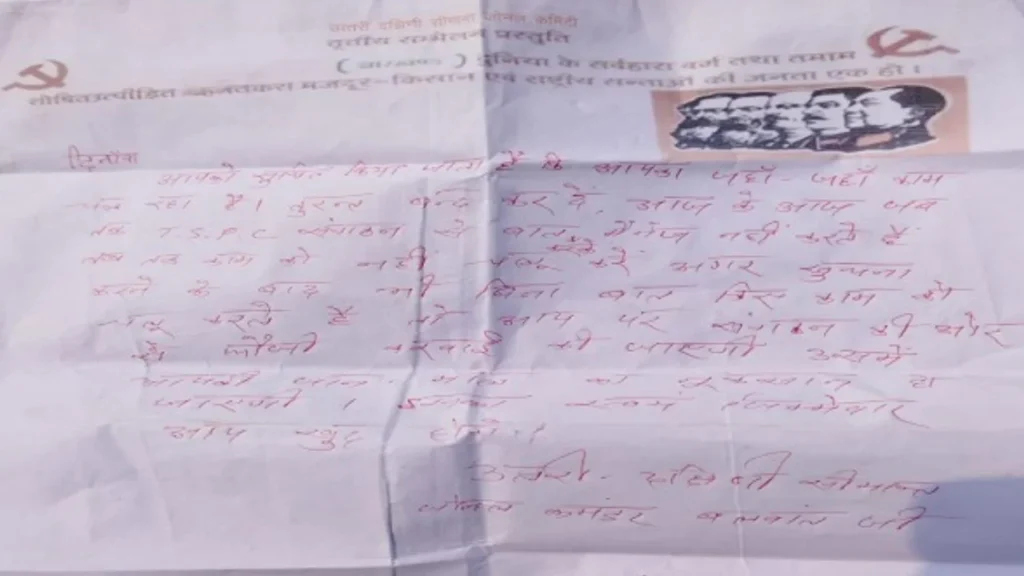 उत्तरी दक्षिणी सीमान्त जोनल कमिटी
तृतीय सम्मेलन प्रस्तुति
( झारखण्ड ) दुनिया के सर्वहारा वर्ग तथा तमाम
शोषित उत्पीड़ित मजदूर-किसान एवं राष्ट्रीय सत्ताओं की जनता एक हों।
दिनाँक
आपको सुचित किया जाता है कि आपका जहाँ-जहाँ काम
चल रहा है। तुरन्त बन्द कर दें, आज के आज जब
तक T.S.P.C संगठन से बात मैनेज नहीं करते हैं
तब तक काम को नहीं चालू करें अगर सुचना
करने के बाद भी बिना बात किए काम को
चालू करते हैं तो आप पर संगठन की ओर
से फौजी करवाई की जाएगी उसमें
आपकी जान-माल का नुकसान हो
जाएगी। इसका स्वयं जिम्मेवार
आप खुद होंगे।
उतरी-दक्षिणी सीमान्त
जोनल कमांडर बलवंत जी